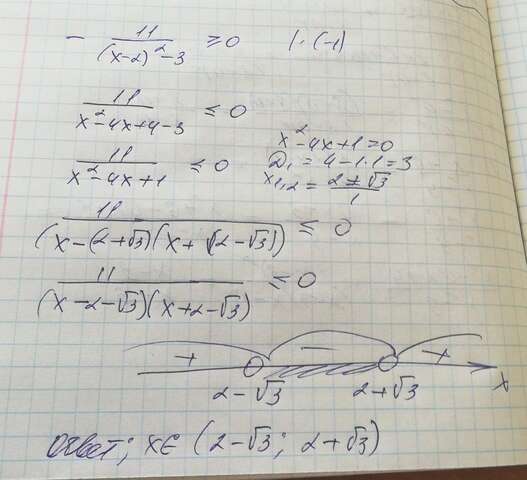 - 11/((x-2)²-3) ≥ 0 | · (-1)
11/(x²-4x+4-3) ≤ 0
x²-4x+1=0
11/(x²-4x+1) ≤ 0
D₁ = 4-1·1=3
x₁,₂ = (2±√3)/1
11/((x-(2+√3)(x+(2-√3)) ≤ 0
11/((x-2-√3)(x+2-√3)) ≤ 0
+ - +
2-√3 2+√3 x
Ответ; x∈ (2-√3; 2+√3)